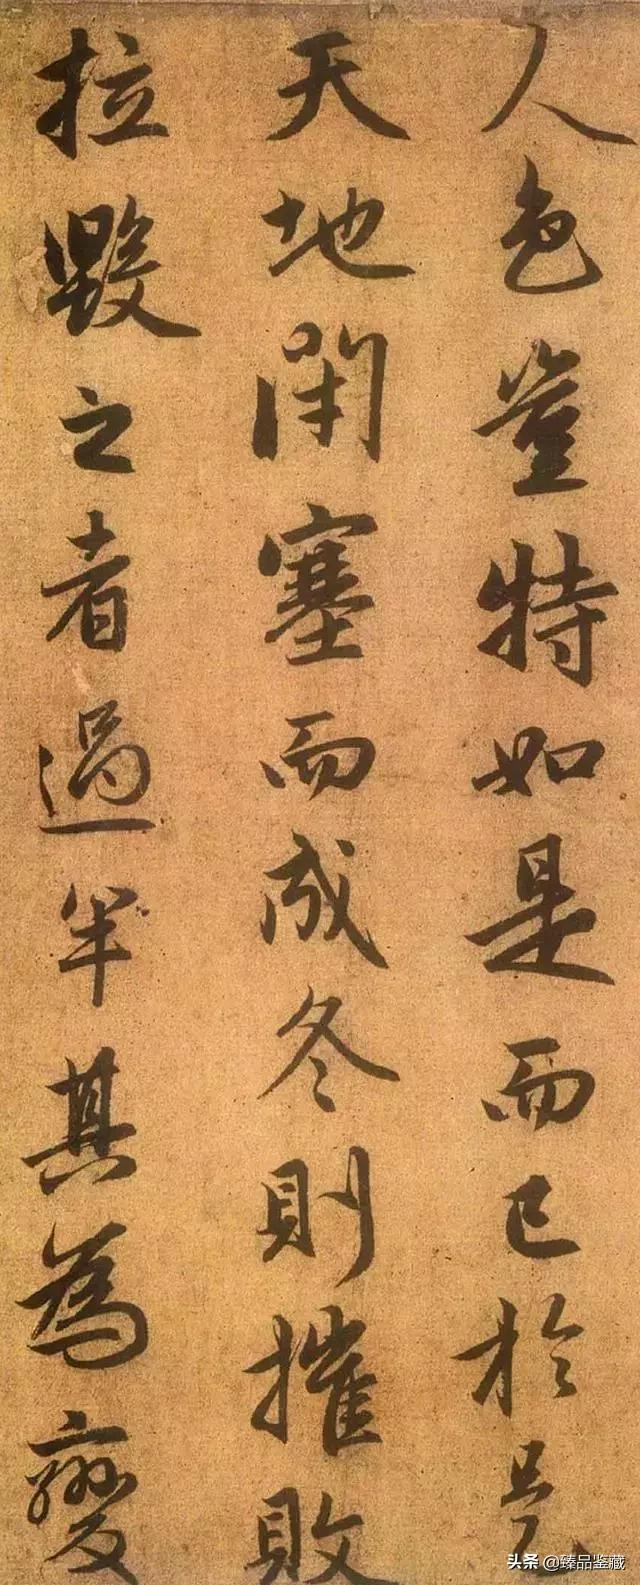 人色豈特如是而已於是
天地閉塞而成冬則摧敗
拉毀之者過半其為變
头条 @臻品鉴藏